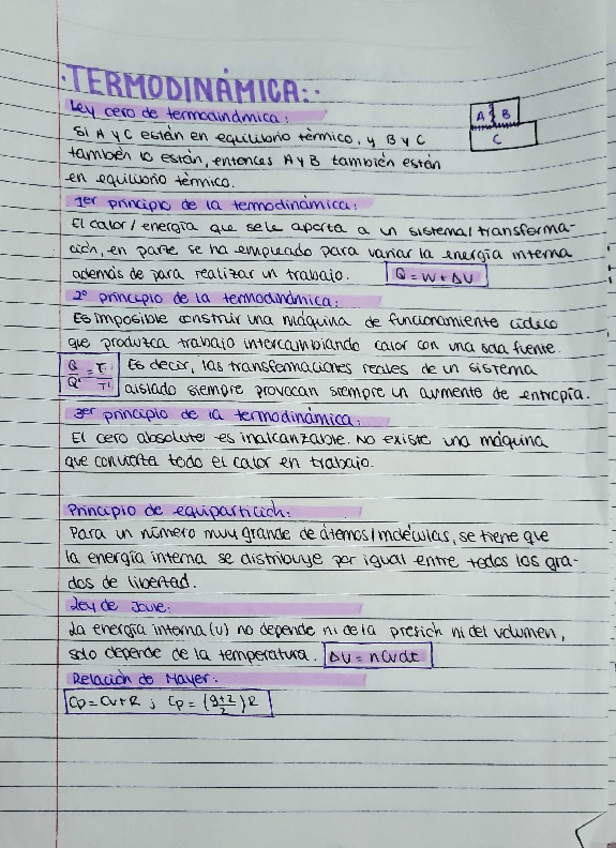 ·TERMODINÁMICA:·
Ley cero de termodinámica:
Si A y C están en equilibrio térmico, y B y C
también lo están, entonces A y B también están
en equilibrio térmico.
A B
C
1er principio de la termodinámica:
El calor/energía que se le aporta a un sistema/transforma-
ción, en parte se ha empleado para variar la energía interna
además de para realizar un trabajo. Q = W + ΔU
2º principio de la termodinámica:
Es imposible construir una máquina de funcionamiento cíclico
que produzca trabajo intercambiando calor con una sola fuente.
Q/Q' = T/T' Es decir, las transformaciones reales de un sistema
aislado siempre provocan siempre un aumento de entropía.
3er principio de la termodinámica:
El cero absoluto es inalcanzable. No existe una máquina
que convierta todo el calor en trabajo.
Principio de equipartición:
Para un número muy grande de átomos/moléculas, se tiene que
la energía interna se distribuye por igual entre todos los gra-
dos de libertad.
Ley de Joule:
La energía interna (U) no depende ni de la presión ni del volumen,
solo depende de la temperatura. ΔU = nCvdt
Relación de Mayer:
Cp = Cv + R ; Cp = (g+2/2)R